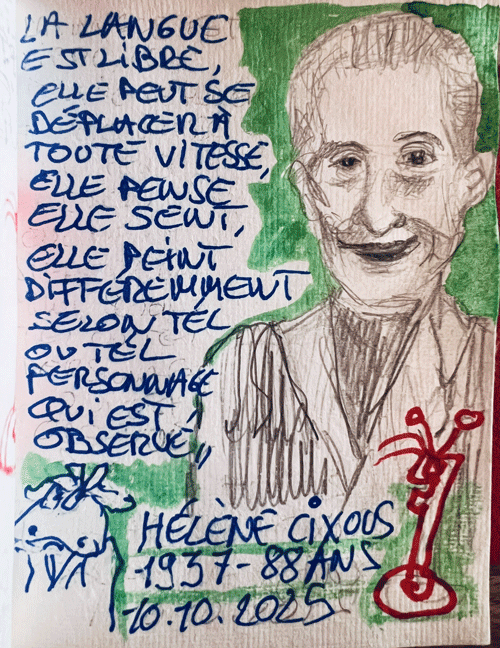 LA LANGUE
EST LIBRE,
ELLE PEUT SE
DÉPLACER À
TOUTE VITESSE,
ELLE PENSE
ELLE SENT,
ELLE PEINT
DIFFEREMMENT
SELON TEL
OU TEL
PERSONNAGE
QUI EST
OBSERVÉ,,
HÉLÈNE CIXOUS
1937-88 ANS
10.10.2025